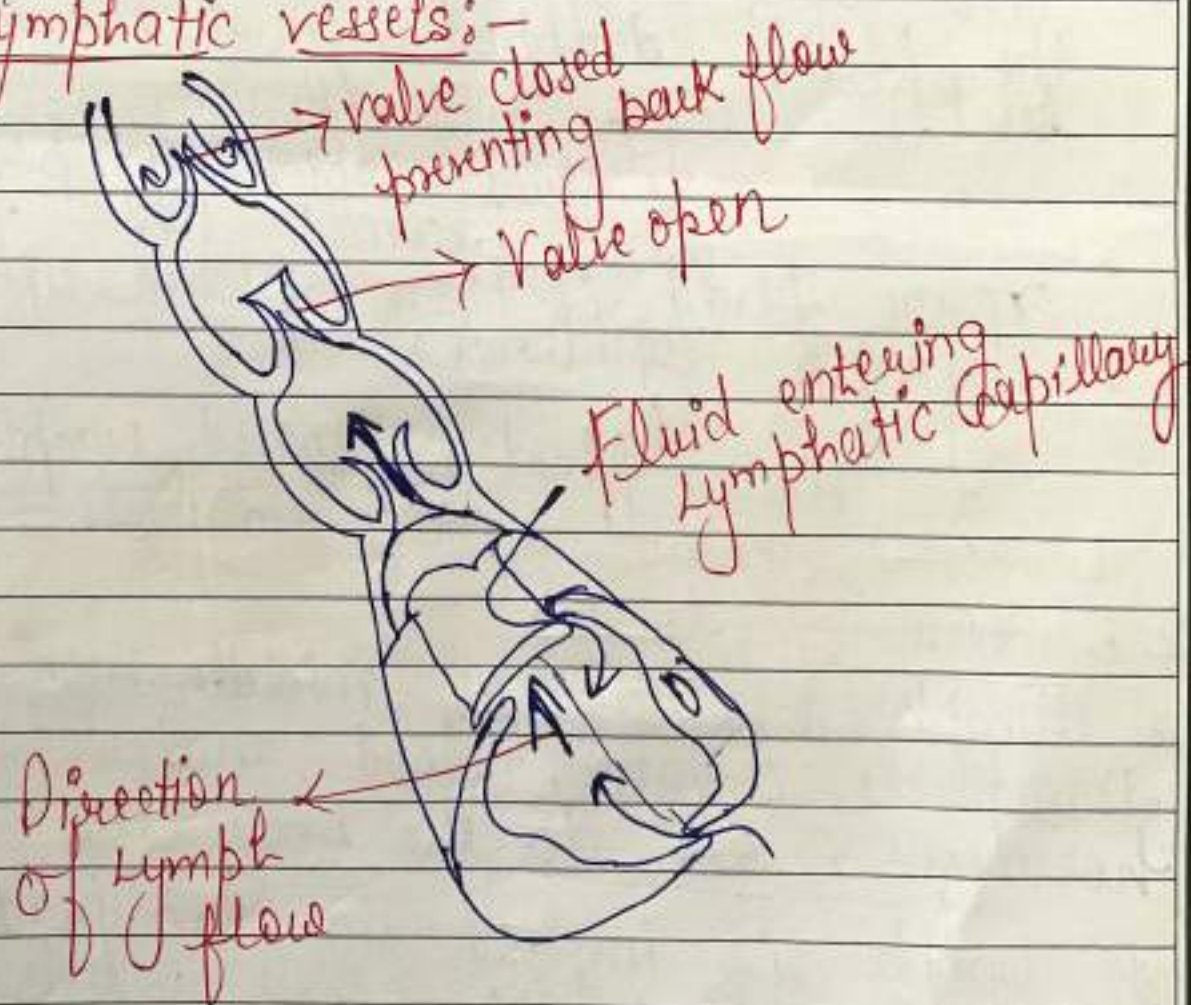 ymphatic vessels:-
valve closed
preventing back flow
Valve open
Fluid entering
Lymphatic Capillary
Direction
of Lymph
flow